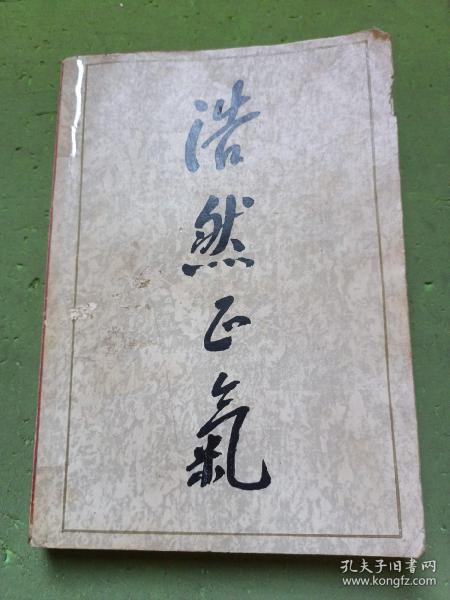 浩然正氣
孔夫子旧书网
www.kongfz.com